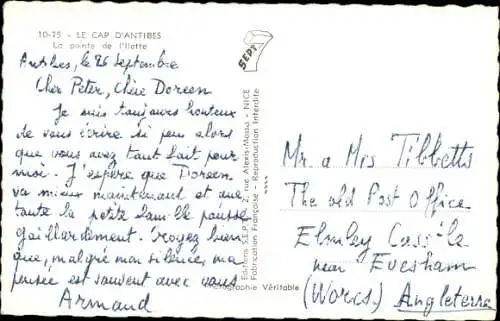 10-75 - LE CAP D'ANTIBES
La pointe de l'Ilette
Antibes, le 26 Septembre
Cher Peter, Chère Doreen
Je suis toujours honteux
de vous écrire si peu alors
que vous avez tant fait pour
moi. J'espère que Doreen
va mieux maintenant et que
toute la petite famille pousse
gaillardement. Croyez bien
que, malgré mon silence, ma
pensée est souvent avec vous
Armand
SEPT
Editions S.E.P.T. 2, rue Alexis-Mossa - NICE
Fabrication Française - Reproduction Interdite
Photographie Véritable
Mr a Mrs Tibbetts
The old Post Office
Elmley Castle
near Evesham
(Worcs) Angleterre